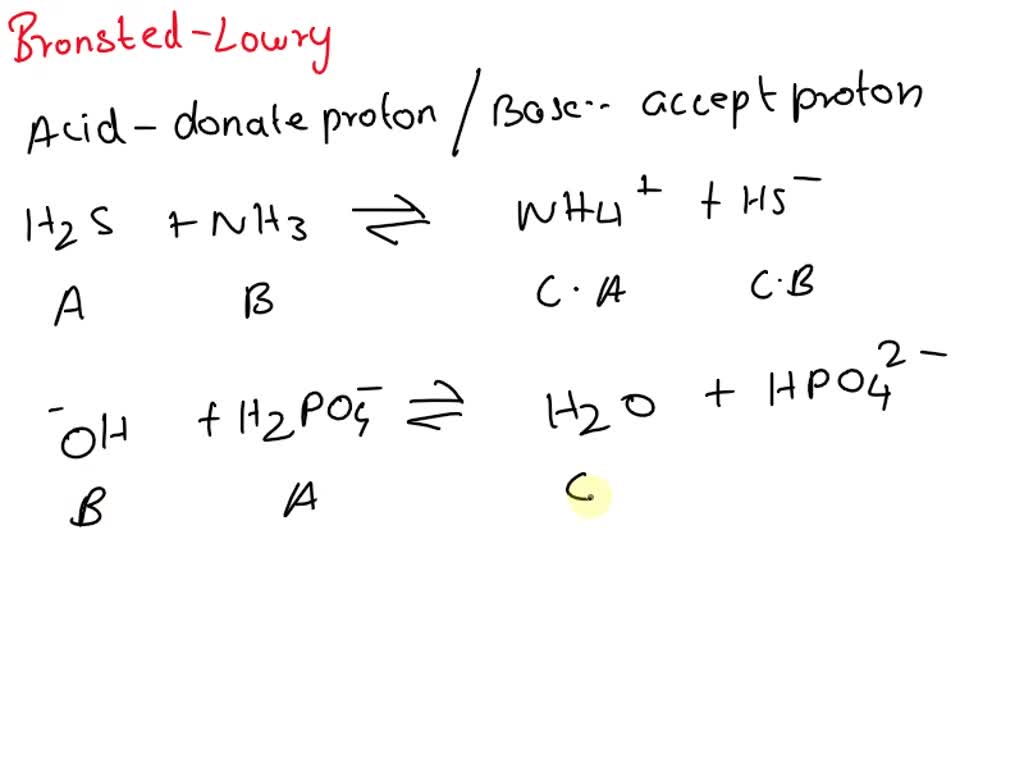 Bronsted-Lowry
Acid - donate proton / Base-- accept proton
H2S + NH3 ⇌ NH4+ + HS-
A B C.A C.B
-OH + H2PO4- ⇌ H2O + HPO4 2-
B A C.